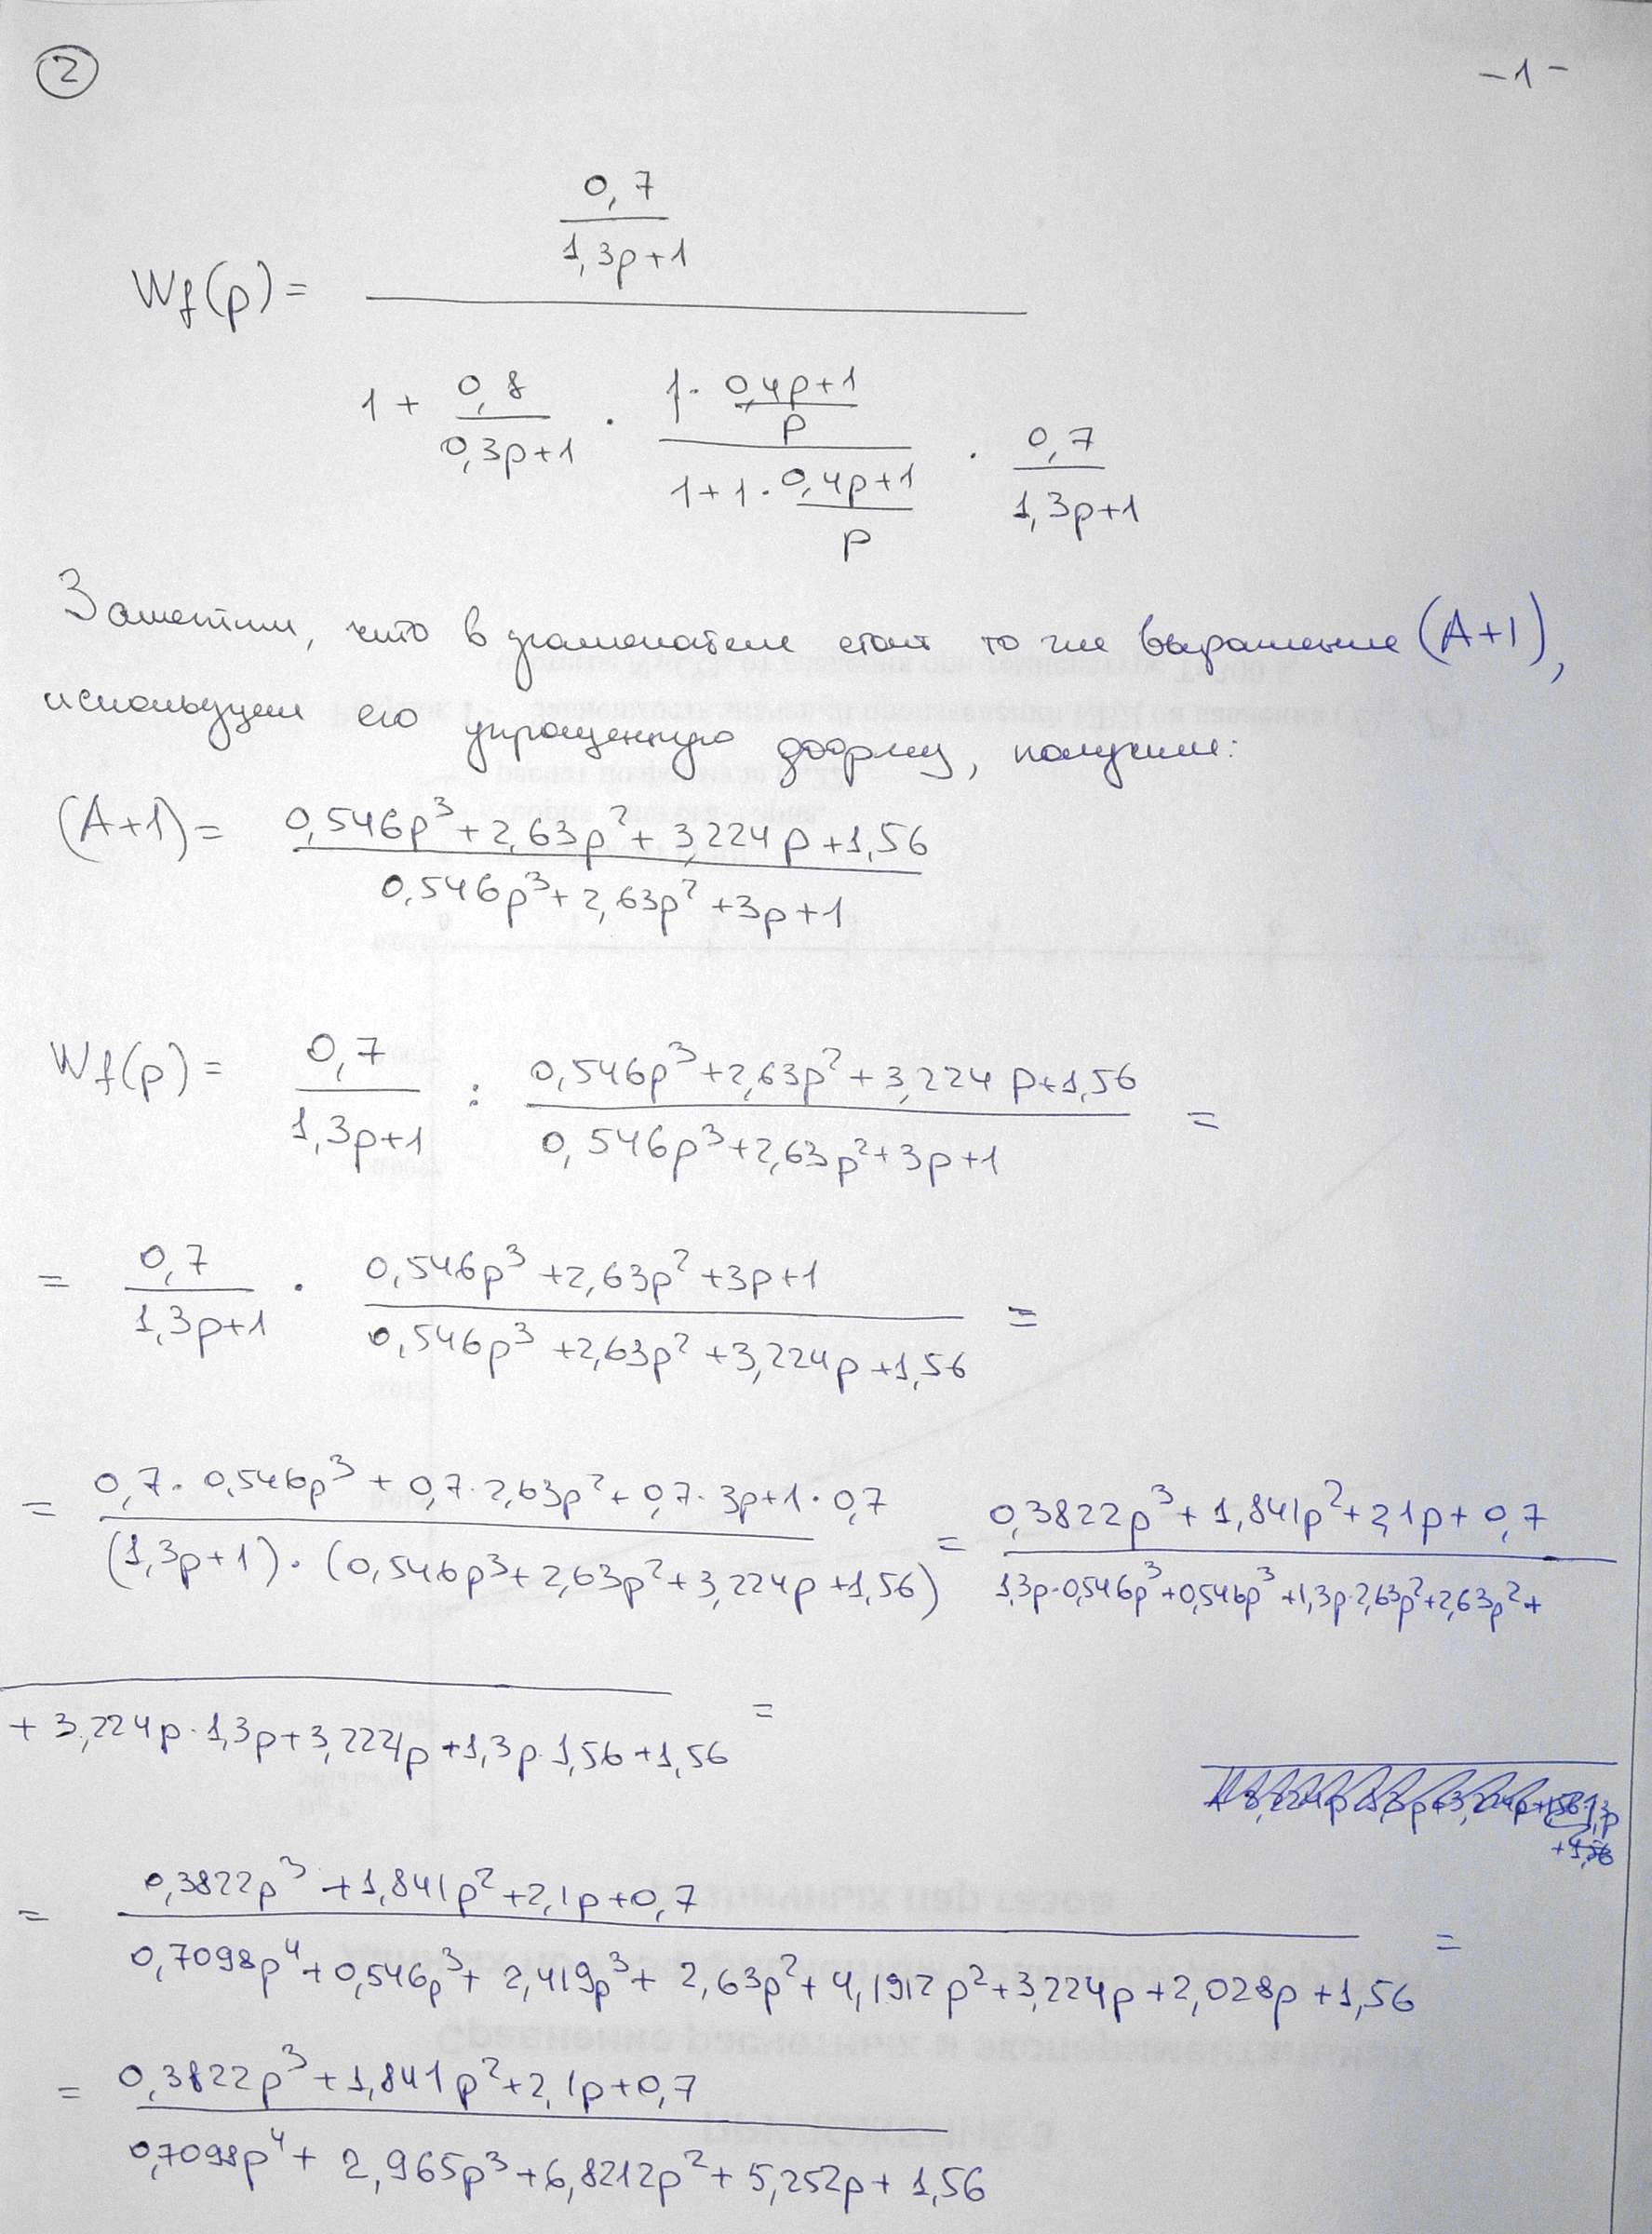 2
-1-
0,7
1,3p+1
Wf(p)=
1 + 0,8 / 0,3p+1 · 1·0,4p+1 / p / 1+1·0,4p+1 / p · 0,7 / 1,3p+1
Заметим, что в знаменателе стоит то же выражение (A+1),
используем его упрощенную форму, получим:
(A+1)= 0,546p³+2,63p²+3,224p+1,56
0,546p³+2,63p²+3p+1
Wf(p)= 0,7 / 1,3p+1 : 0,546p³+2,63p²+3,224p+1,56 / 0,546p³+2,63p²+3p+1 =
= 0,7 / 1,3p+1 · 0,546p³+2,63p²+3p+1 / 0,546p³+2,63p²+3,224p+1,56 =
= 0,7·0,546p³+0,7·2,63p²+0,7·3p+1·0,7 / (1,3p+1)·(0,546p³+2,63p²+3,224p+1,56) = 0,3822p³+1,841p²+2,1p+0,7 / 1,3p·0,546p³+0,546p³+1,3p·2,63p²+2,63p²+
+3,224p·1,3p+3,224p+1,3p·1,56+1,56 =
= 0,3822p³+1,841p²+2,1p+0,7
0,7098p⁴+0,546p³+2,419p³+2,63p²+4,1912p²+3,224p+2,028p+1,56 =
= 0,3822p³+1,841p²+2,1p+0,7
0,7098p⁴+2,965p³+6,8212p²+5,252p+1,56